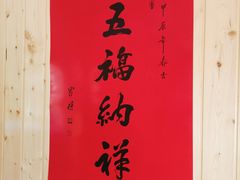 甲辰年春
五福納祥